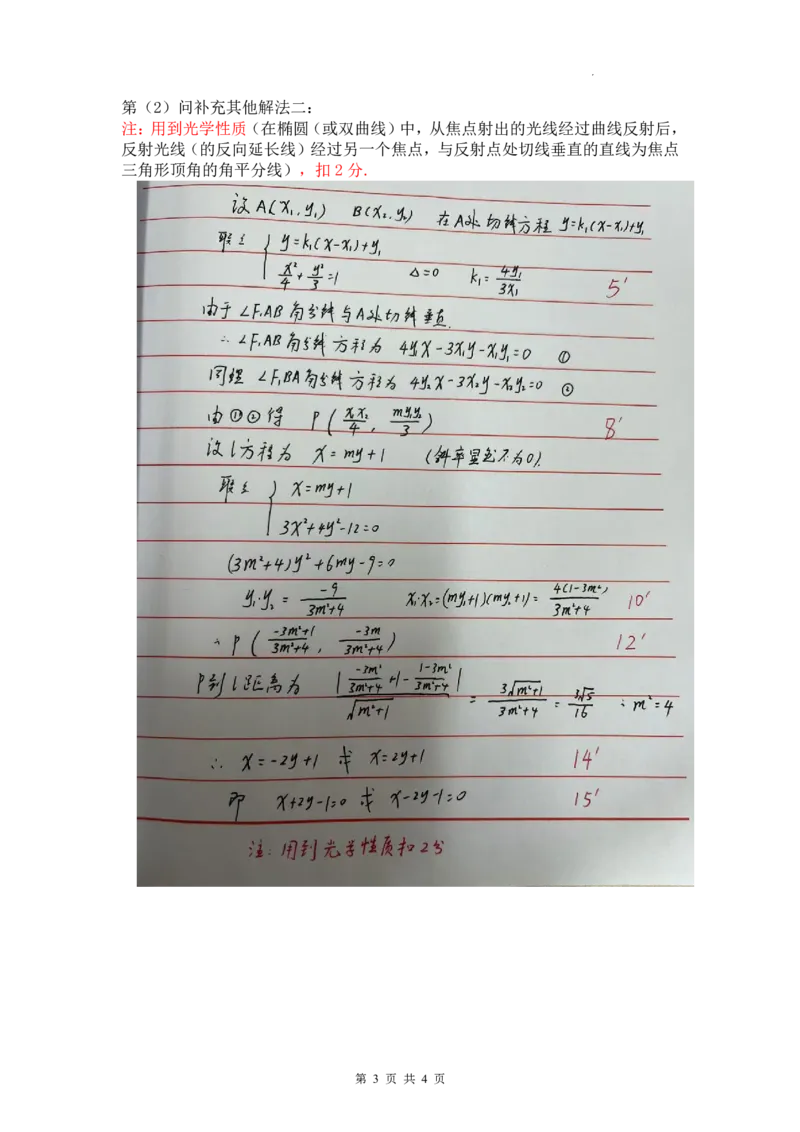 第（2）问补充其他解法二：
注：用到光学性质（在椭圆（或双曲线）中，从焦点射出的光线经过曲线反射后，
反射光线（的反向延长线）经过另一个焦点，与反射点处切线垂直的直线为焦点
三角形顶角的角平分线），扣2分.
设A(x₁,y₁) B(x₂,y₂) 在A处切线方程 y=k₁(x-x₁)+y₁
联立 { y=k₁(x-x₁)+y₁
x²/4+y²/3=1 Δ=0 k₁=4y₁/3x₁ 5'
由于∠F₁AB角分线与A处切线垂直.
∴∠F₁AB角分线方程为 4y₁x-3x₁y-x₁y₁=0 ①
同理 ∠F₁BA角分线方程为 4y₂x-3x₂y-x₂y₂=0 ②
由①②得 P(x₁x₂/4, my₁y₂/3) 8'
设l方程为 x=my+1 (斜率显然不为0).
联立 { x=my+1
3x²+4y²-12=0
(3m²+4)y²+6my-9=0
y₁·y₂=-9/(3m²+4) x₁·x₂=(my₁+1)(my₂+1)=4(1-3m²)/(3m²+4) 10'
∴P((-3m²+1)/(3m²+4), -3m/(3m²+4)) 12'
P到l距离为 |-3m²/(3m²+4)+1-(1-3m²)/(3m²+4)|/√(m²+1) = 3√(m²+1)/(3m²+4) = 3√5/16 ∴m²=4
∴ x=-2y+1 或 x=2y+1 14'
即 x+2y-1=0 或 x-2y-1=0 15'
注：用到光学性质扣2分
第 3 页 共 4 页